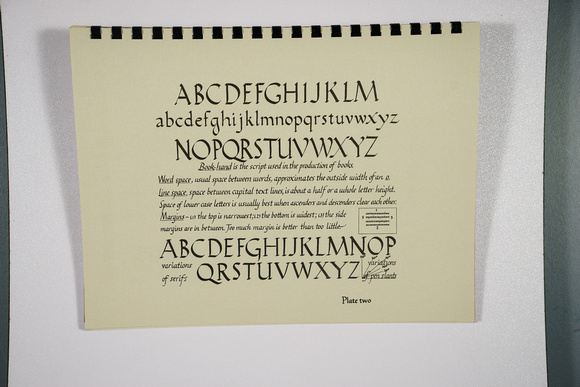 ABCDEFGHIJKLM
abcdefghijklmnopqrstuvwxyz
NOPQRSTUVWXYZ
Book-hand is the script used in the production of books
Word space, usual space between words, approximates the outside width of an o.
Line space, space between capital text lines, is about a half or a whole letter height.
Space of lower case letters is usually best when ascenders and descenders clear each other.
Margins – at the top is narrowest; the bottom is widest; the side
margins are in between. Too much margin is better than too little
ABCDEFGHIJKLMNOP
variations QRSTUVWXYZ variations
of serifs of pen slants
Plate two